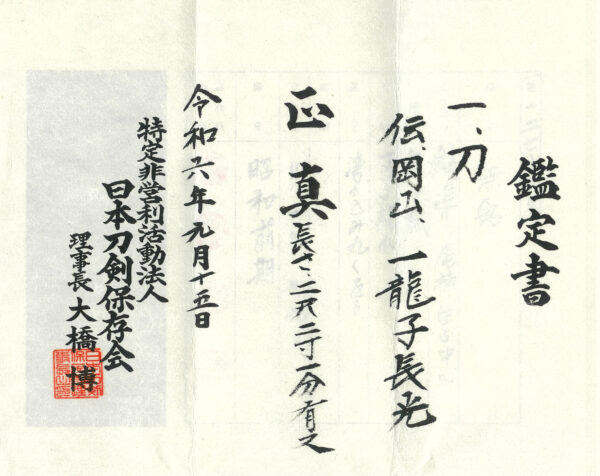 鑑定書
一、刀
伝、岡山、一龍子長光
正真 長さ、二尺二寸一分有之
令和六年九月十五日
特定非営利活動法人
日本刀剣保存会
理事長 大橋 博